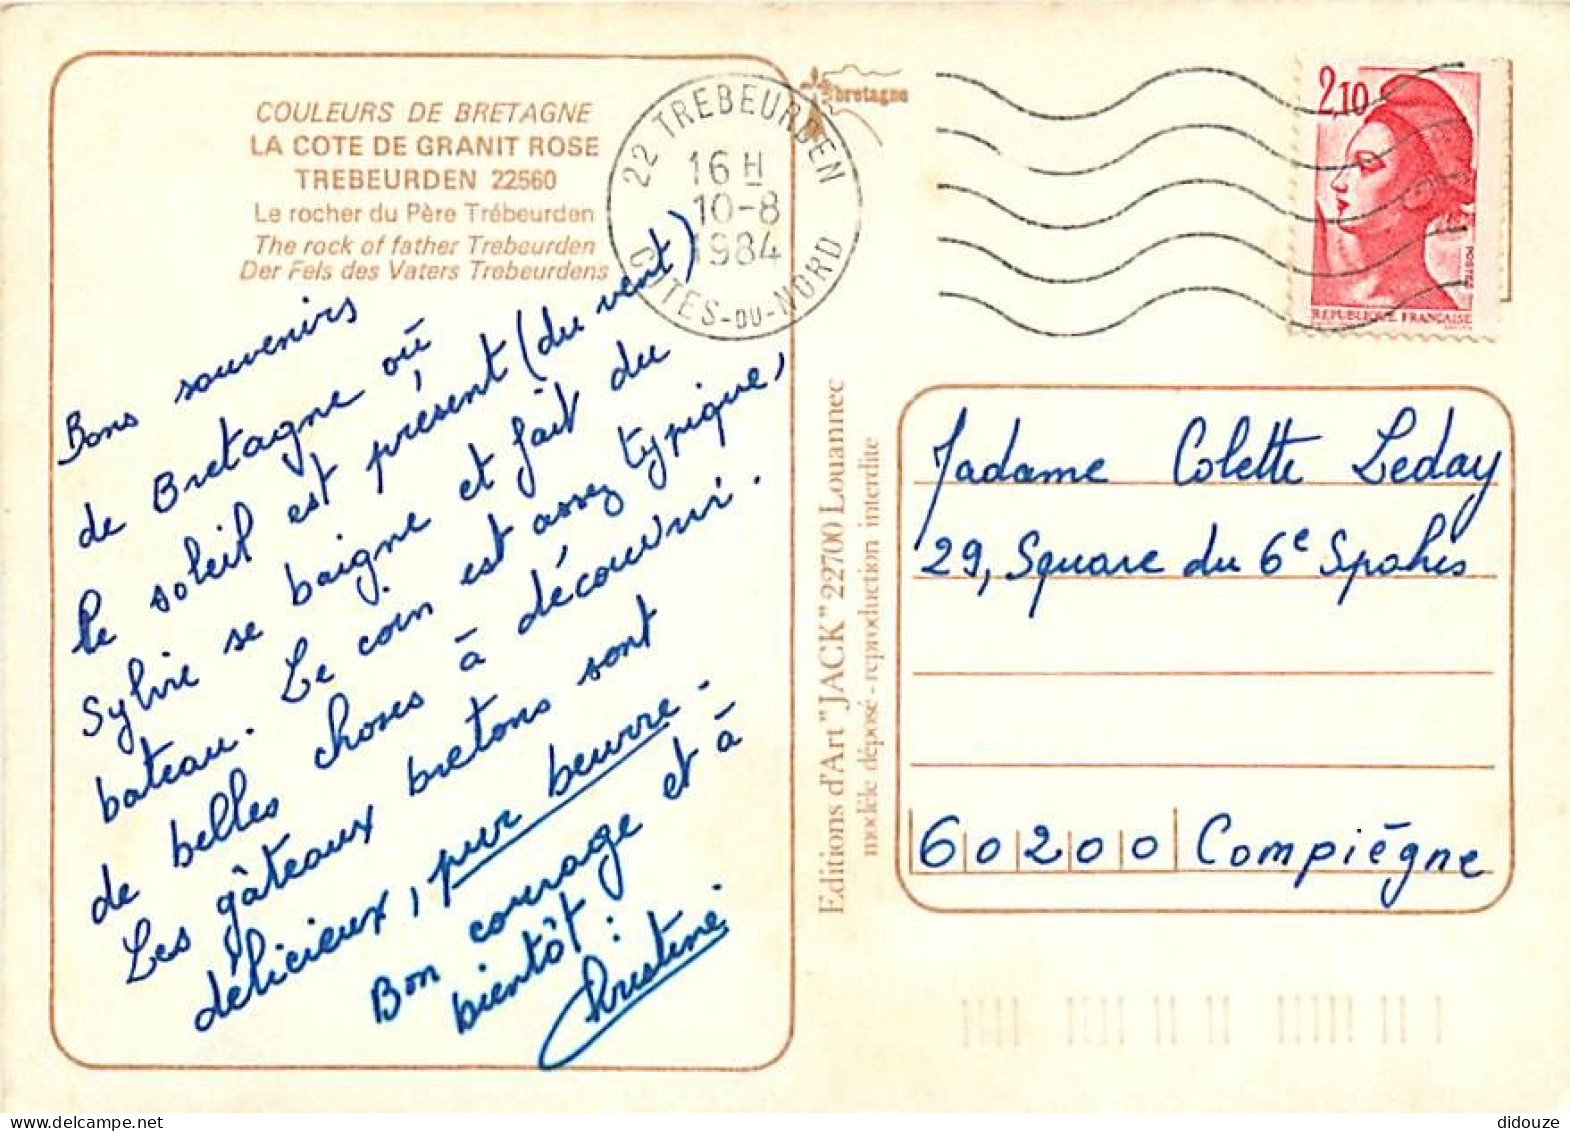 COULEURS DE BRETAGNE
LA COTE DE GRANIT ROSE
TREBEURDEN 22560
Le rocher du Père Trébeurden
The rock of father Trebeurden
Der Fels des Vaters Trebeurdens
Bons souvenirs
de Bretagne où
le soleil est présent (du vent)
Sylvie se baigne et fait du
bateau. Le coin est assez typique,
de belles choses à découvrir.
Les gâteaux bretons sont
délicieux, pur beurre.
Bon courage et à
bientôt :
Christine
22 TREBEURDEN
16 H
10-8
1984
COTES-DU-NORD
bretagne
2,10
POSTES
REPUBLIQUE FRANÇAISE
Editions d'Art "JACK" 22700 Louannec
modèle déposé - reproduction interdite
Madame Colette Leday
29, Square du 6e Spahis
60200 Compiègne
didouze